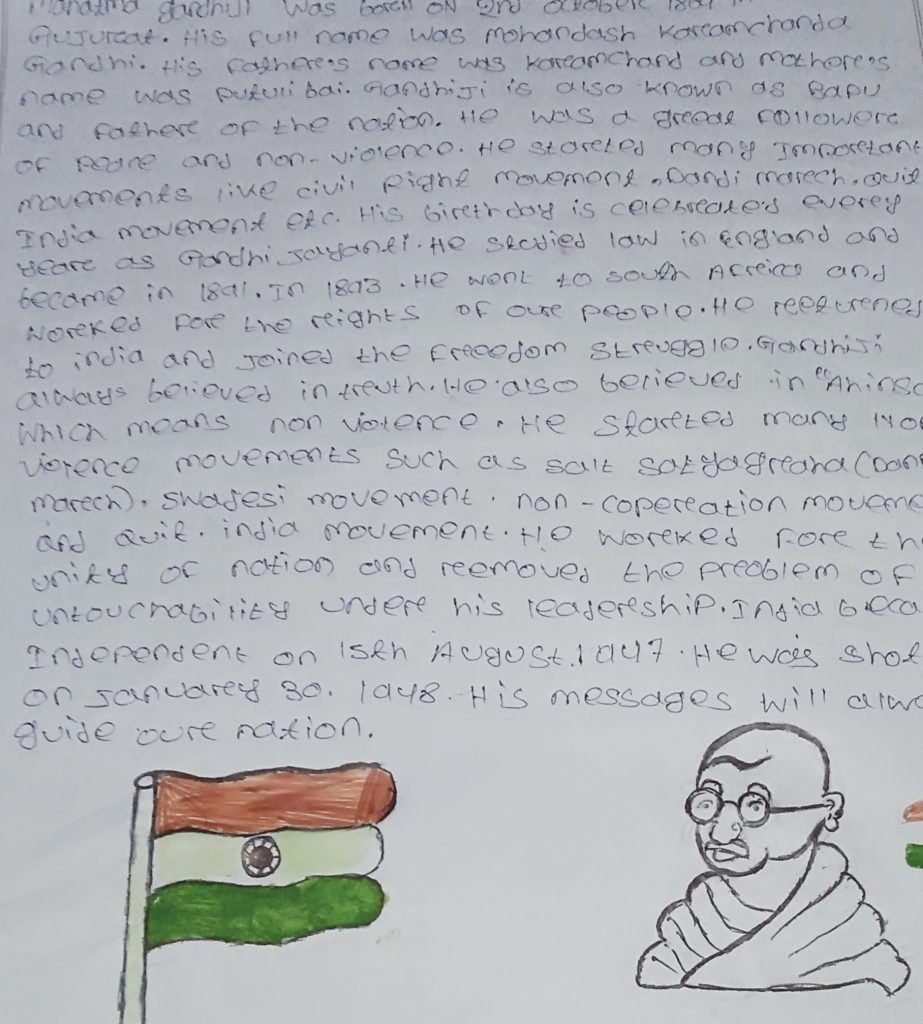 Mahatma gandhiji was boren on 2nd octobere 1869 in
Gujureat. His full name was Mohandash Kareamchanda
Gandhi. His fathere's name was Kareamchand and mothere's
name was putuli bai. Gandhiji is also known as Bapu
and fathere of the nation. He was a greeat followere
of peace and non-violence. He stareted many Imporetant
movements like civil Right movement, Dandi march, quit
India movement etc. His bireth day is celebreated everey
yeare as Gandhi Jayanti. He studied law in England and
became in 1891. In 1893. He went to south Africa and
Woreked fore the reights of oure people. He reeturened
to india and joined the freeedom streuggle. Gandhiji
always believed in treuth. He also believed in "Ahinsa
which means non violence. He stareted many No
violence movements such as salt satyagreaha (Dan
march), swadesi movement, non-copereation moveme
and Quit. india movement. He woreked fore th
unity of nation and reemoved the preoblem of
untouchability undere his leadereship. India beca
Independent on 15th August. 1947. He was shot
on januarey 30. 1948. His messages will alwa
guide oure nation.